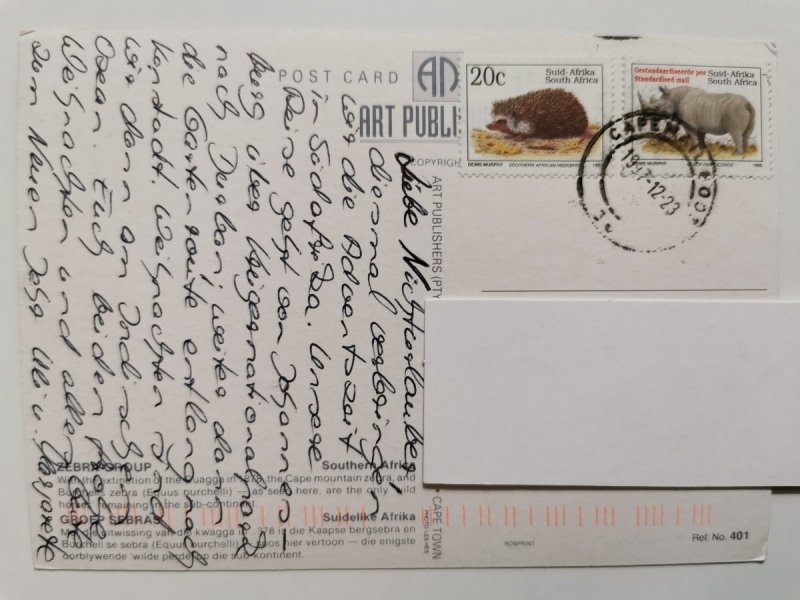 POST CARD
ART PUBLI
COPYRIGHT
ART PUBLISHERS (PTY
CAPE TOWN
20c
Suid-Afrika
South Africa
DENIS MURPHY SOUTHERN AFRICAN HEDGEHOG 1993
Gestandaardiseerde pos
Standardised mail
Suid-Afrika
South Africa
DENIS MURPHY
1993
1997-12-23
Liebe Nichturlauber
diesmal verbringen
wir die Adventszeit
in Südafrika. Unsere
Reise geht von Johannes-
burg über Krügernationalpark
nach Durban; weiter dann
die Gartenroute entlang nach
Kapstadt Weihnachten sind
wir dann am Indischen
Ozean. Euch beiden Frohe
Weihnachten und alles Gute
zum Neuen Jahr Uli u.
ZEBRA GROUP Southern Africa
With the extinction of the Quagga in 1878, the Cape mountain zebra, and
Burchell's zebra (Equus burchelli) – as seen here, are the only wild
horses remaining in the sub-continent.
GROEP SEBRAS Suidelike Afrika
Met die uitwissing van die kwagga in 1878 is die Kaapse bergsebra en
Burchell se sebra (Equus burchelli) – soos hier vertoon – die enigste
oorblywende wilde perde op die sub-kontinent.
ROBPRINT
Ref. No. 401